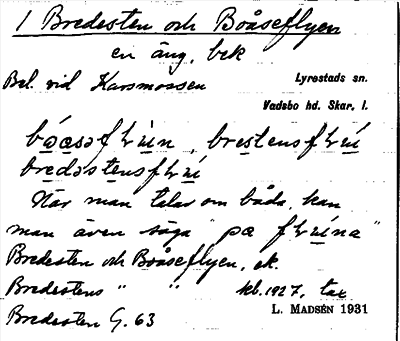 1 Bredesten och Boåseflyen
en äng, bek
Bel. vid Karsmossen
Lyrestads sn.
Vadsbo hd. Skar. l.
När man talar om båda, kan
man även säga "pæ
Bredesten och Boåseflyen, ek.
Bredestens " " kb. 1927, tax
Bredesten G. 63
L. MADSÉN 1931